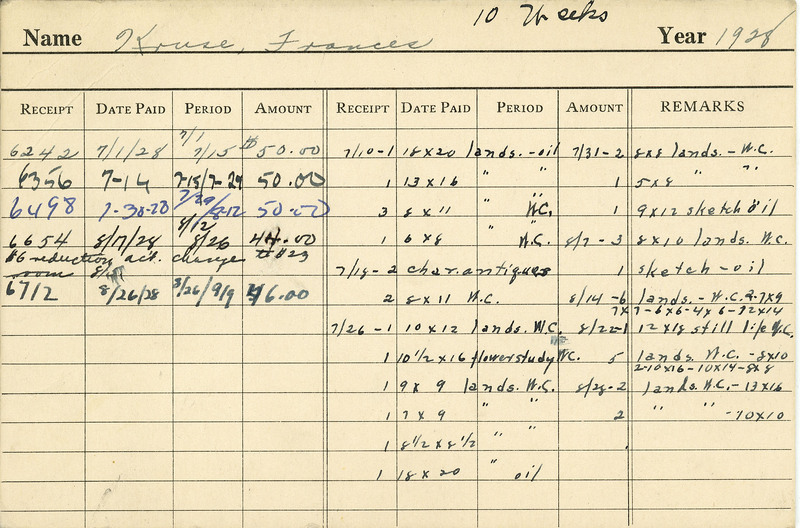 10 Weeks
Name Kruse, Frances Year 1928
RECEIPT DATE PAID PERIOD AMOUNT RECEIPT DATE PAID PERIOD AMOUNT REMARKS
6242 7/1/28 7/1 7/15 $50.00 7/10-1 18x20 lands.-oil 7/31-2 8x8 lands.-W.C.
6356 7-14 7-15/7-29 50.00 1 13x16 " " 1 5x8 " "
6498 7-30-28 7/29/8-12 50.00 3 8x11 " W.C. 1 9x12 sketch oil
6654 8/17/28 8/12 8/26 44.00 1 6x8 " W.C. 8/7-3 8x10 lands. W.C.
$6 reduction act. change to #23
room 8/15 7/18-2 char. antiques 1 sketch-oil
6712 8/26/28 8/26/9/9 46.00 2 8x11 W.C. 8/14-6 lands.-W.C. 2-7x9
7x7-6x6-4x6-12x14
7/26-1 10x12 lands. W.C. 8/22-1 12x18 still life W.C.
1 10 1/2 x 16 flower study W.C. 5 lands. W.C.-8x10
2-10x16-10x14-8x8
1 9x9 lands. W.C. 8/28-2 lands. W.C.-13x16
1 7x9 " " 2 " " -10x10
1 8 1/2 x 8 1/2 " "
1 18x20 " oil